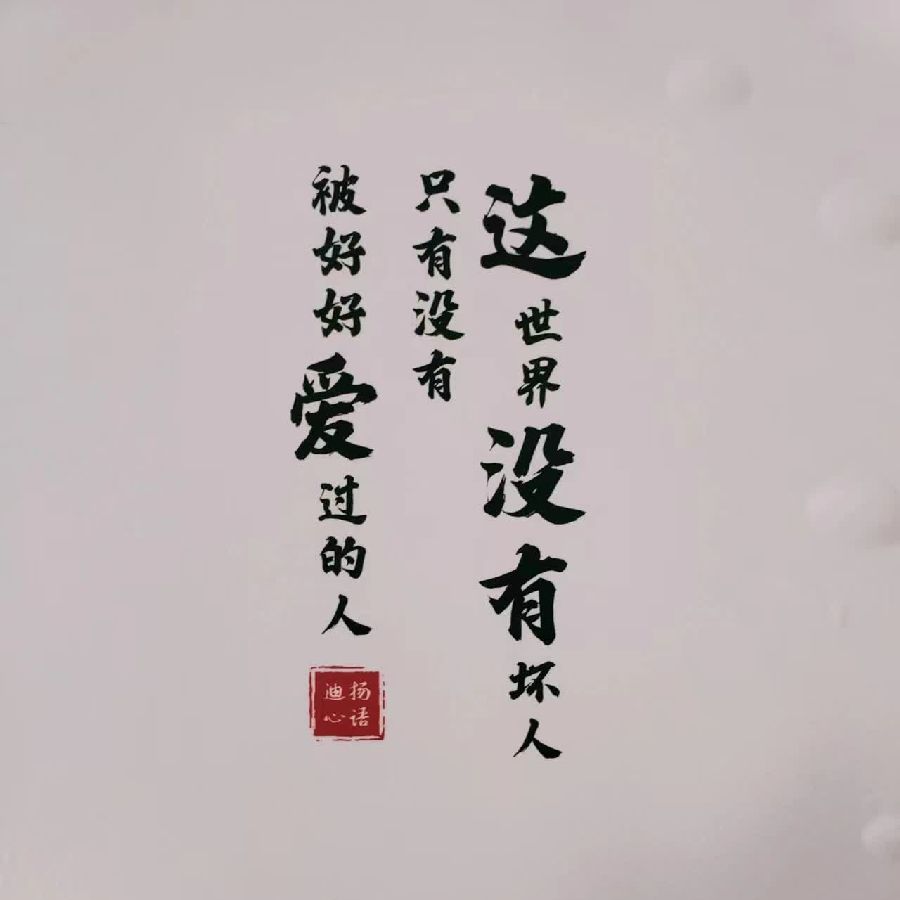 这世界没有坏人
只有没有
被好好爱过的人
扬语
迪心